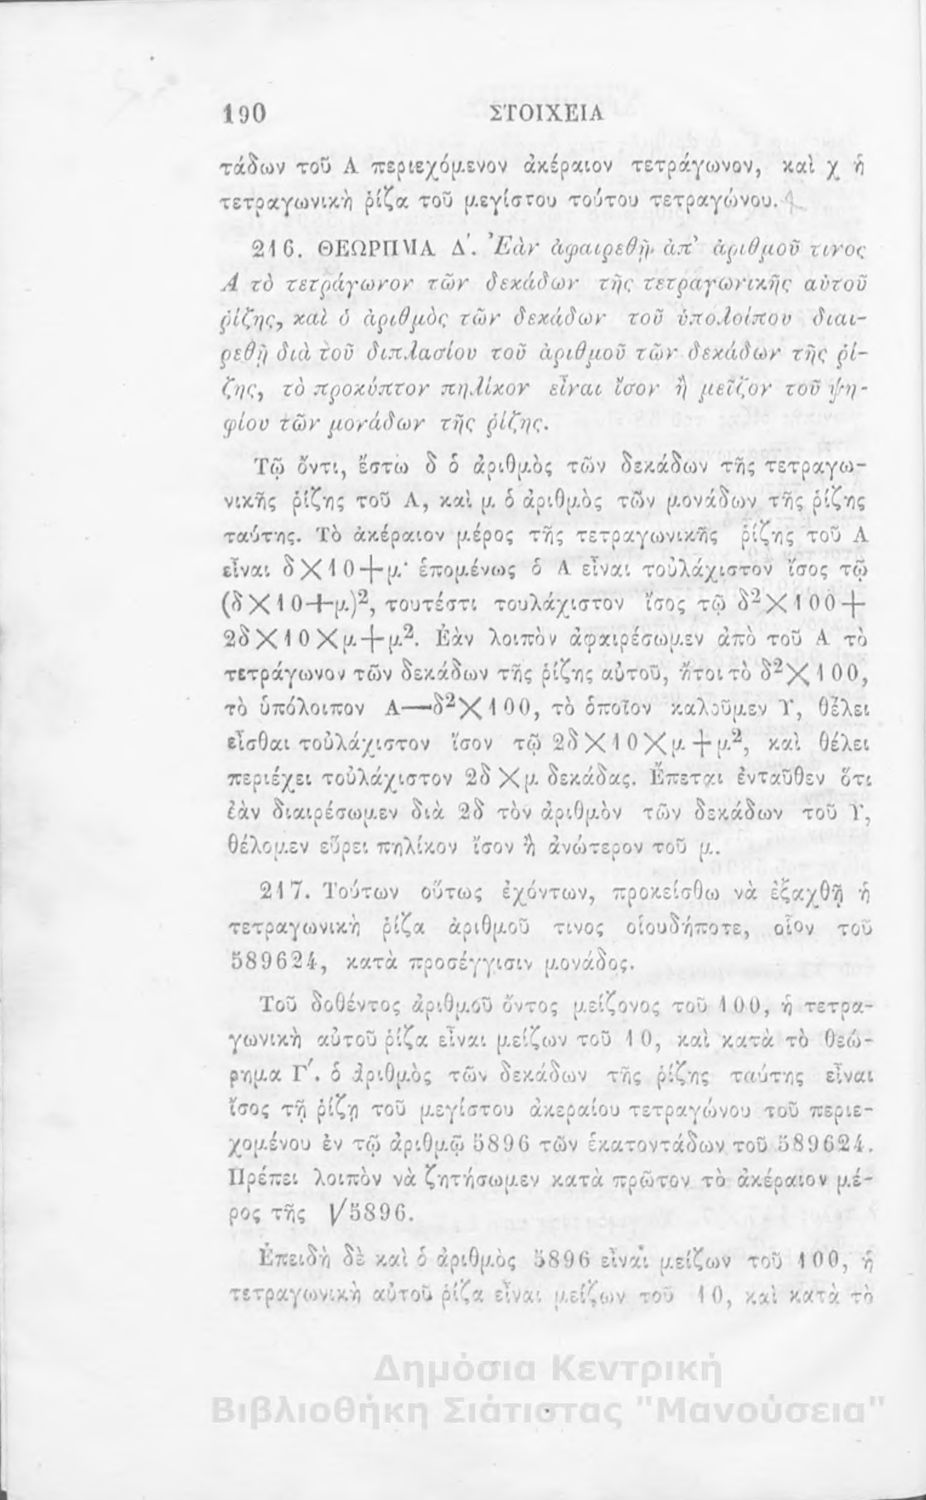 190 ΣΤΟΙΧΕΙΑ
τάδων τοῦ Α περιεχόμενον ἀκέραιον τετράγωνον, καὶ χ ἡ
τετραγωνικὴ ῥίζα τοῦ μεγίστου τούτου τετραγώνου.
216. ΘΕΩΡΗΜΑ Δ'. Ἐὰν ἀφαιρεθῇ ἀπ' ἀριθμοῦ τινος
Α τὸ τετράγωνον τῶν δεκάδων τῆς τετραγωνικῆς αὐτοῦ
ῥίζης, καὶ ὁ ἀριθμὸς τῶν δεκάδων τοῦ ὑπολοίπου διαι-
ρεθῇ διὰ τοῦ διπλασίου τοῦ ἀριθμοῦ τῶν δεκάδων τῆς ῥί-
ζης, τὸ προκύπτον πηλίκον εἶναι ἴσον ἢ μεῖζον τοῦ ψη-
φίου τῶν μονάδων τῆς ῥίζης.
Τῷ ὄντι, ἔστω δ ὁ ἀριθμὸς τῶν δεκάδων τῆς τετραγω-
νικῆς ῥίζης τοῦ Α, καὶ μ ὁ ἀριθμὸς τῶν μονάδων τῆς ῥίζης
ταύτης. Τὸ ἀκέραιον μέρος τῆς τετραγωνικῆς ῥίζης τοῦ Α
εἶναι δ×10+μ· ἑπομένως ὁ Α εἶναι τοὐλάχιστον ἴσος τῷ
(δ×10+μ)², τουτέστι τουλάχιστον ἴσος τῷ δ²×100+
2δ×10×μ+μ². Ἐὰν λοιπὸν ἀφαιρέσωμεν ἀπὸ τοῦ Α τὸ
τετράγωνον τῶν δεκάδων τῆς ῥίζης αὐτοῦ, ἤτοι τὸ δ²×100,
τὸ ὑπόλοιπον Α—δ²×100, τὸ ὁποῖον καλοῦμεν Υ, θέλει
εἶσθαι τοὐλάχιστον ἴσον τῷ 2δ×10×μ+μ², καὶ θέλει
περιέχει τοὐλάχιστον 2δ×μ δεκάδας. Ἕπεται ἐνταῦθεν ὅτι
ἐὰν διαιρέσωμεν διὰ 2δ τὸν ἀριθμὸν τῶν δεκάδων τοῦ Υ,
θέλομεν εὕρει πηλίκον ἴσον ἢ ἀνώτερον τοῦ μ.
217. Τούτων οὕτως ἐχόντων, προκείσθω νὰ ἐξαχθῇ ἡ
τετραγωνικὴ ῥίζα ἀριθμοῦ τινος οἱουδήποτε, οἷον τοῦ
589624, κατὰ προσέγγισιν μονάδος.
Τοῦ δοθέντος ἀριθμοῦ ὄντος μείζονος τοῦ 100, ἡ τετρα-
γωνικὴ αὐτοῦ ῥίζα εἶναι μείζων τοῦ 10, καὶ κατὰ τὸ θεώ-
ρημα Γ'. ὁ ἀριθμὸς τῶν δεκάδων τῆς ῥίζης ταύτης εἶναι
ἴσος τῇ ῥίζῃ τοῦ μεγίστου ἀκεραίου τετραγώνου τοῦ περιε-
χομένου ἐν τῷ ἀριθμῷ 5896 τῶν ἑκατοντάδων τοῦ 589624.
Πρέπει λοιπὸν νὰ ζητήσωμεν κατὰ πρῶτον τὸ ἀκέραιον μέ-
ρος τῆς √5896.
Ἐπειδὴ δὲ καὶ ὁ ἀριθμὸς 5896 εἶναι μείζων τοῦ 100, ἡ
τετραγωνικὴ αὐτοῦ ῥίζα εἶναι μείζων τοῦ 10, καὶ κατὰ τὸ
Δημόσια Κεντρική
Βιβλιοθήκη Σιάτιστας "Μανούσεια"